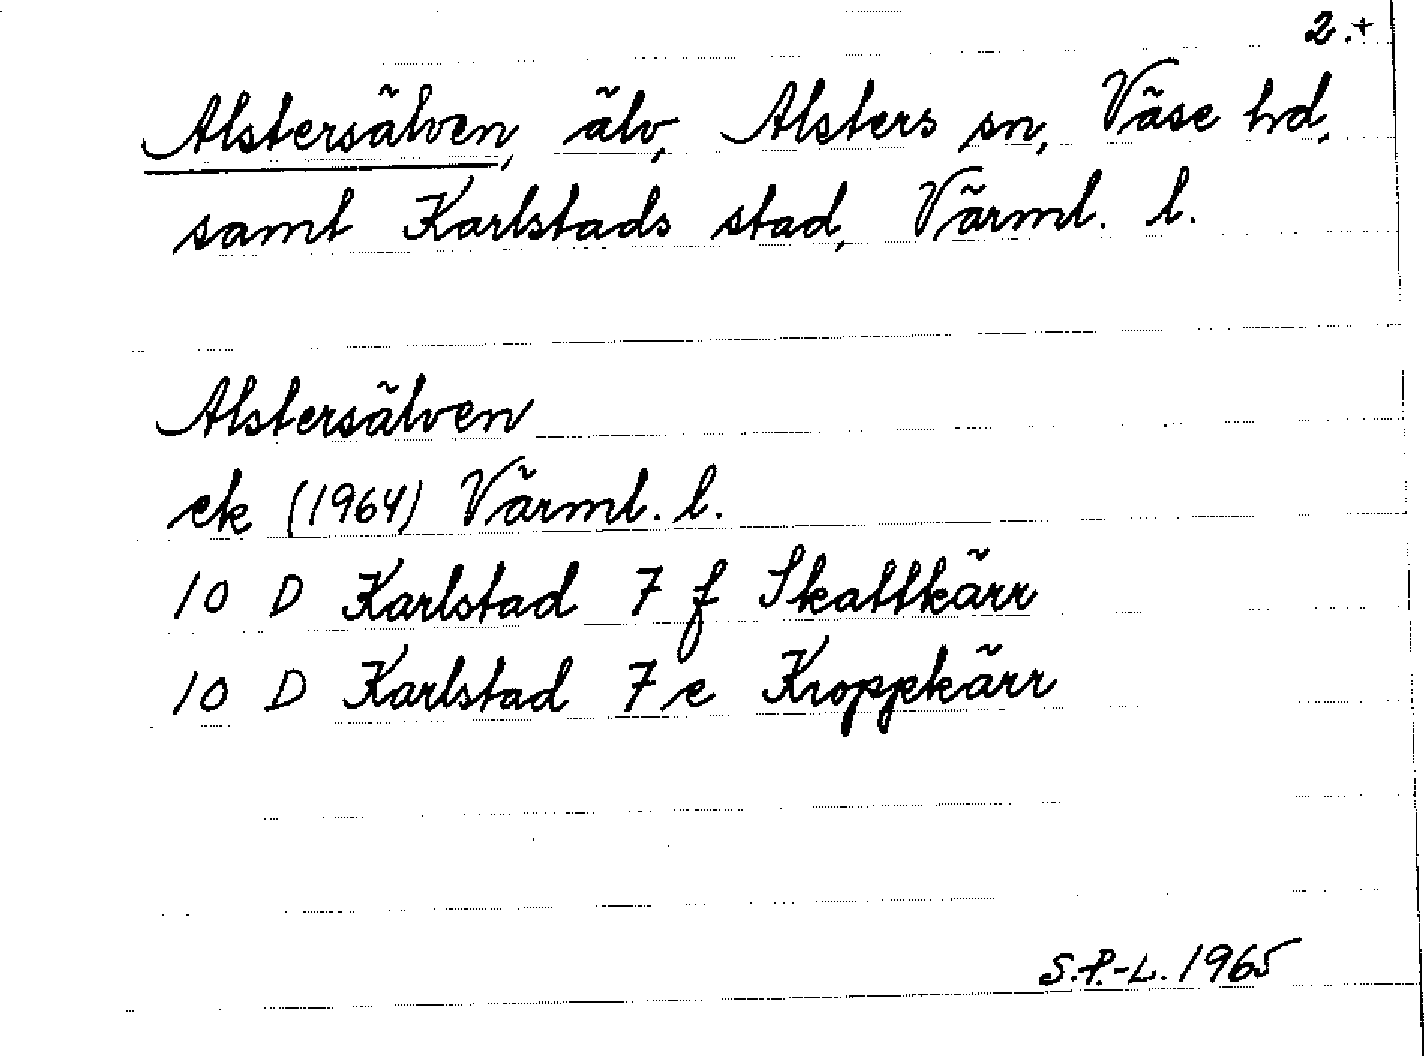 2.+
Alstersälven, älv, Alsters sn, Väse hd,
samt Karlstads stad, Värml. l.
Alstersälven
ek (1964) Värml. l.
10 D Karlstad 7 f Skattkärr
10 D Karlstad 7 e Kroppkärr
S.P.-L. 1965